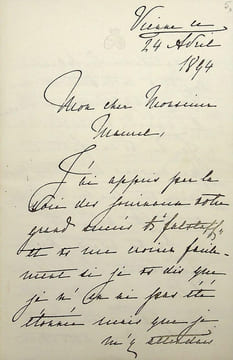 Vienne ce
24 Avril
1894
Mon cher Monsieur
Maurel,
J'ai appris par la
voie des journaux votre
grand succès de "Falstaff"
et me croirez facile-
ment si je vs dis que
je n'en ai pas été
étonnée mais que je
m'y attendais